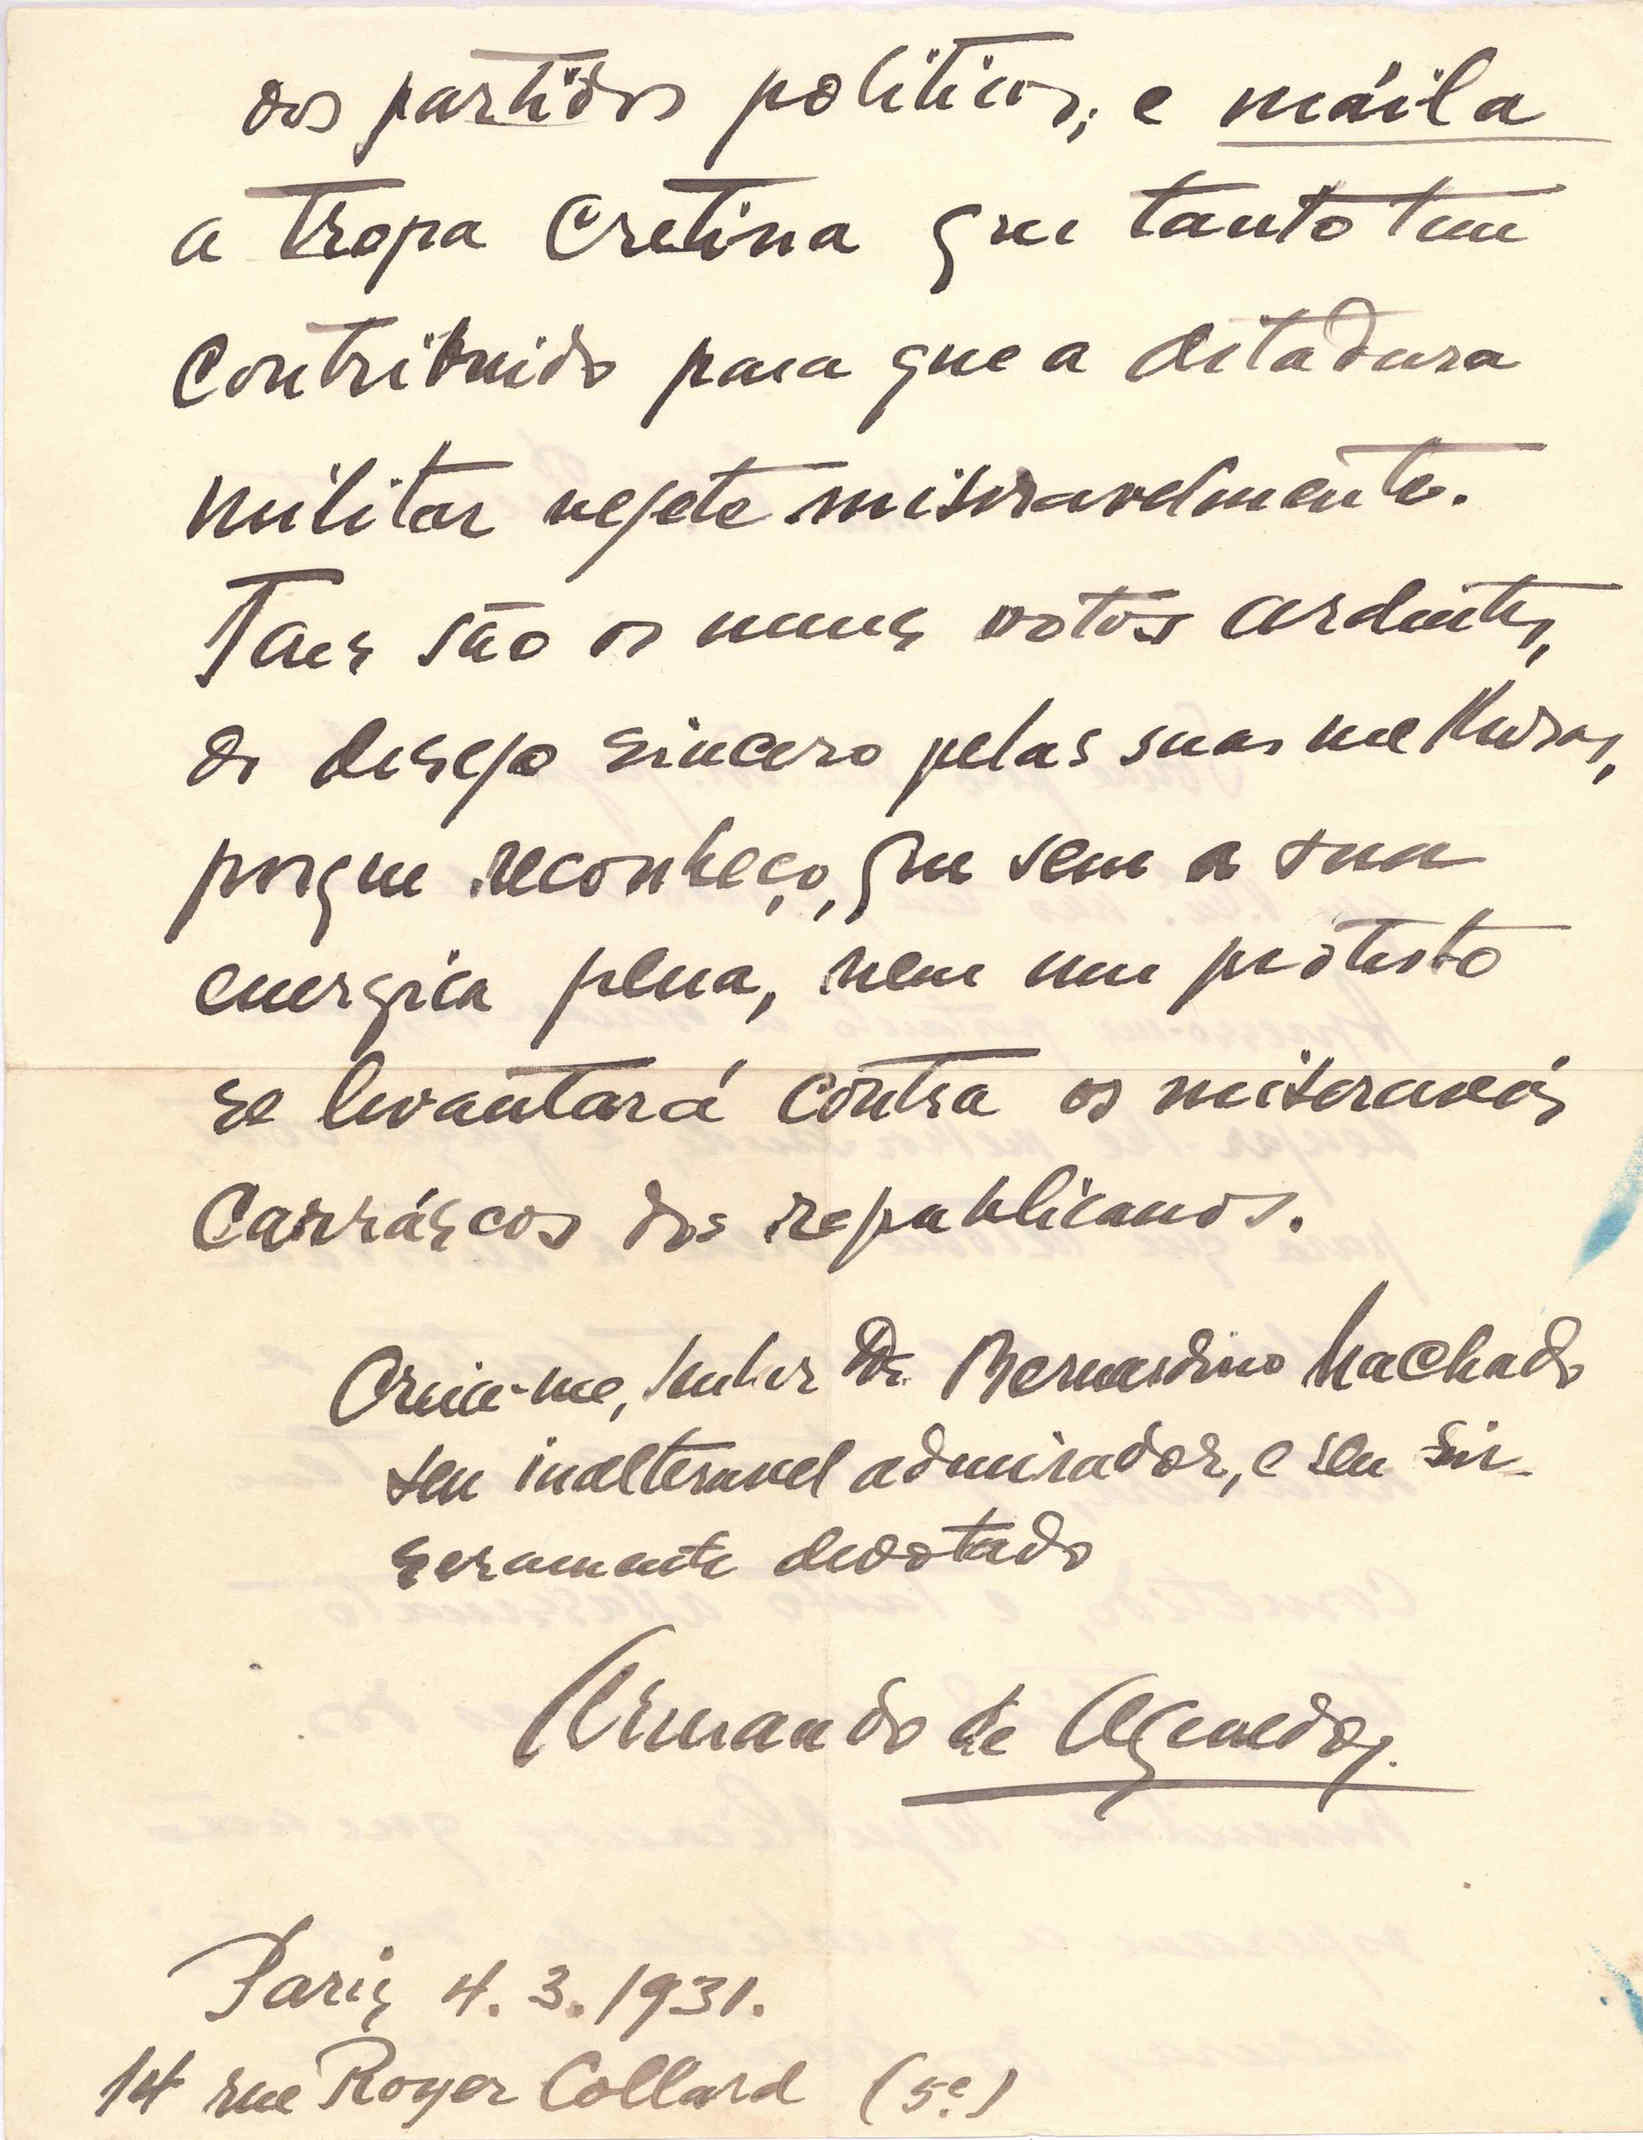 dos partidos politicos; e máila
a tropa cretina que tanto tem
contribuido para que a ditadura
militar vegete miseravelmente.
Taes são os meus votos ardentes,
do desejo sincero pelas suas melhoras,
porque reconheço, que sem a sua
energica pena, nem um protesto
se levantará contra os miseraveis
carráscos dos republicanos.
Creia-me, Senhor Dr. Bernardino Machado
seu inalteravel admirador, e seu sin-
seramente devotado
Armando de Azevedo.
Paris 4.3.1931.
14 rue Royer Collard (5e)